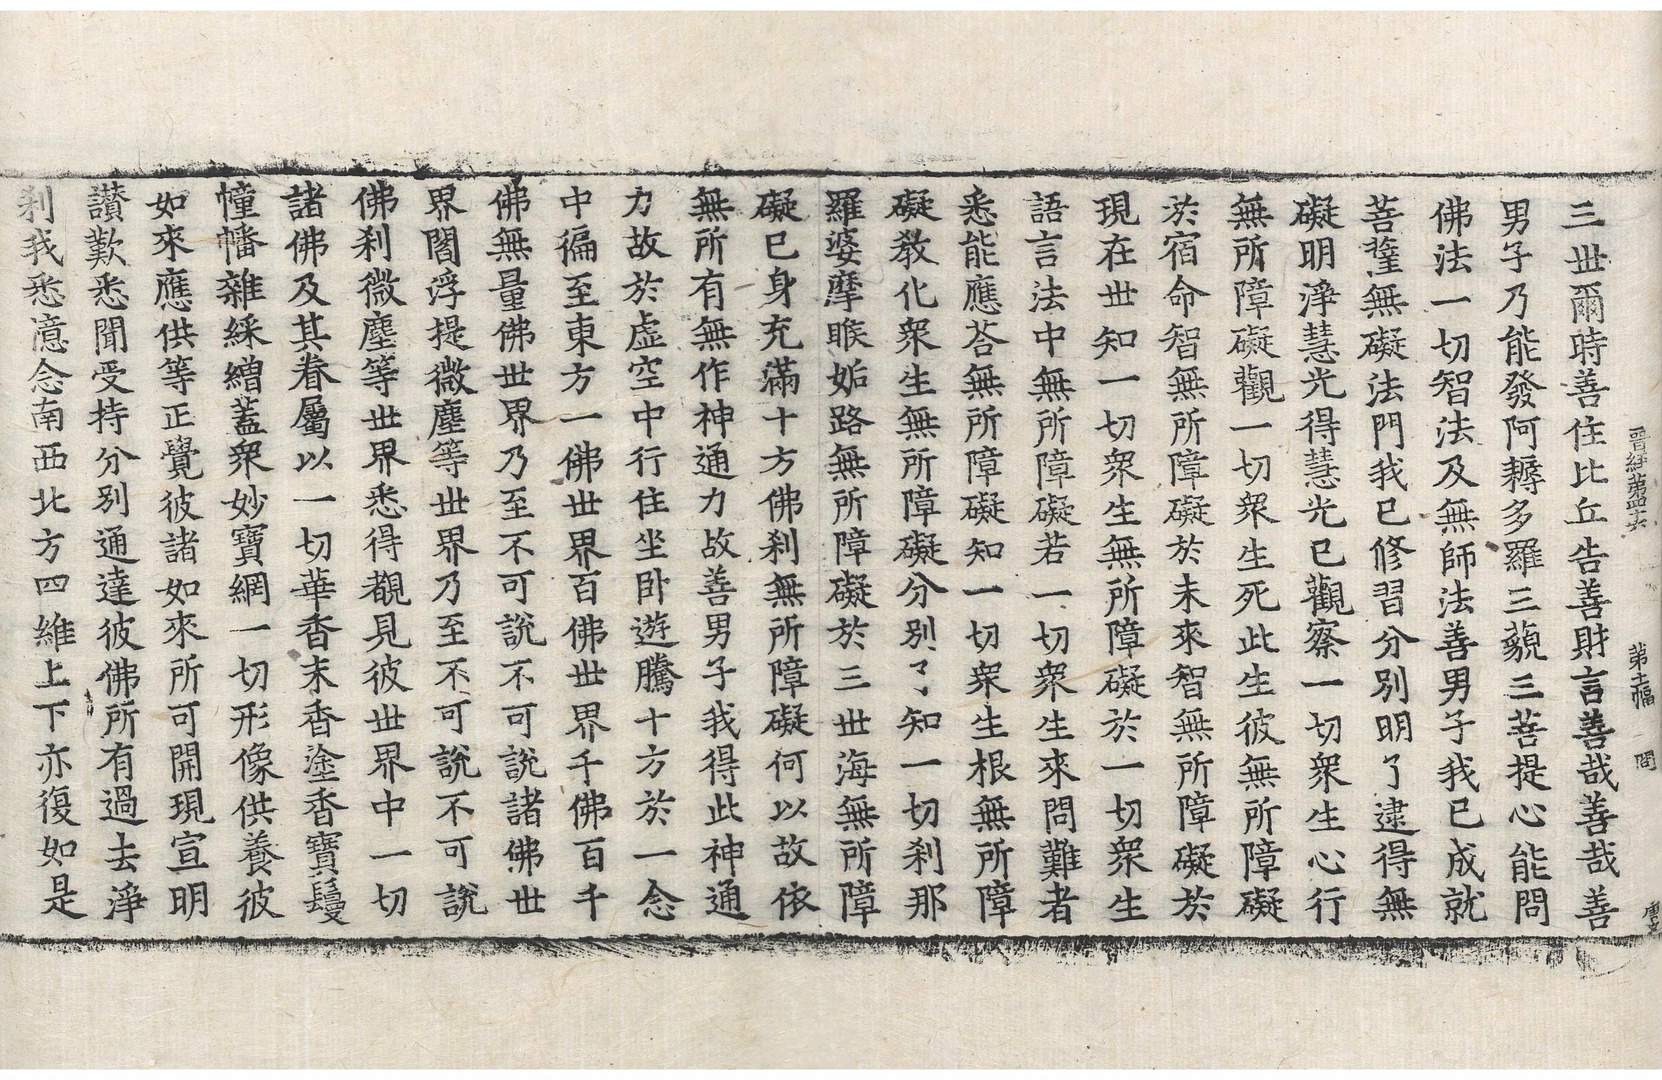 晉經第 第 幅
三世爾時善住比丘告善財言善哉善哉善
男子乃能發阿耨多羅三藐三菩提心能問
佛法一切智法及無師法善男子我已成就
菩薩無礙法門我已修習分別明了逮得無
礙明淨慧光得慧光已觀察一切衆生心行
無所障礙觀一切衆生死此生彼無所障礙
於宿命智無所障礙於未來智無所障礙於
現在世知一切衆生無所障礙於一切衆生
語言法中無所障礙若一切衆生來問難者
悉能應荅無所障礙知一切衆生根無所障
礙教化衆生無所障礙分別了知一切刹那
羅婆摩睺妬路無所障礙於三世海無所障
礙已身充滿十方佛刹無所障礙何以故依
無所有無作神通力故善男子我得此神通
力故於虛空中行住坐臥遊騰十方於一念
中徧至東方一佛世界百佛世界千佛百千
佛無量佛世界乃至不可說不可說諸佛世
界閻浮提微塵等世界乃至不可說不可說
佛刹微塵等世界悉得覩見彼世界中一切
諸佛及其眷屬以一切華香末香塗香寶鬘
幢幡雜綵繒蓋衆妙寶網一切形像供養彼
如來應供等正覺彼諸如來所可開現宣明
讃歎悉聞受持分別通達彼佛所有過去淨
刹我悉憶念南西北方四維上下亦復如是